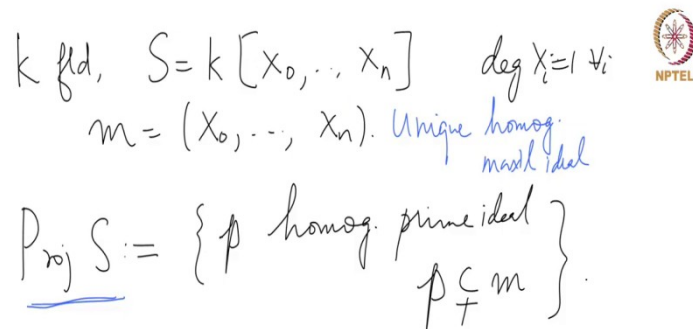 k fld, S = k[X₀, .., Xₙ] deg Xᵢ=1 ∀i
NPTEL
m = (X₀, ..., Xₙ). Unique homog.
maxil ideal
Proj S := { p homog. prime ideal
p ⊊ m }.